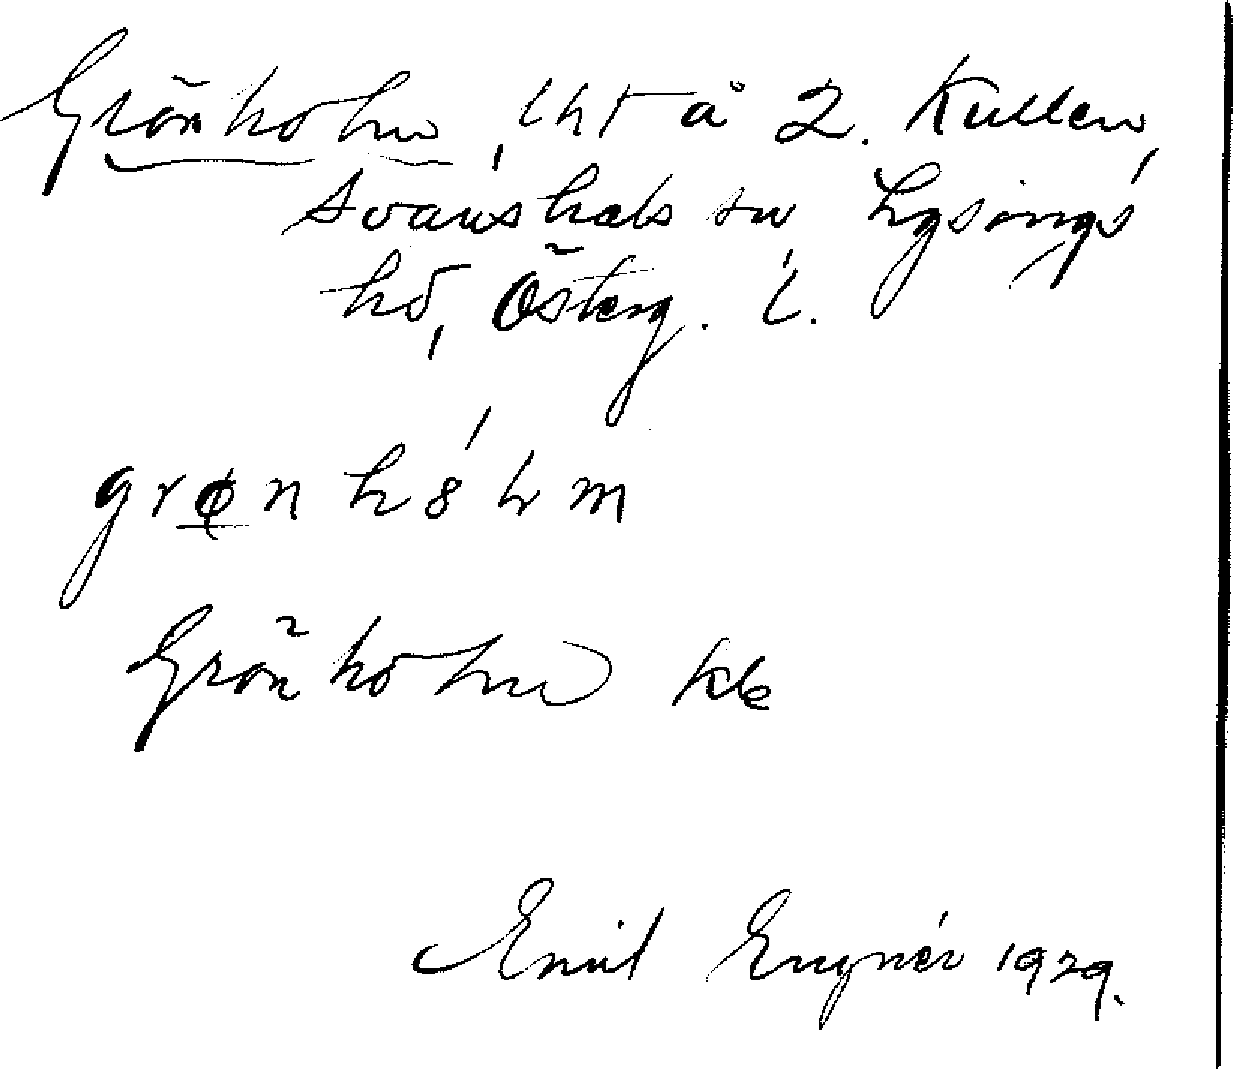 Grönholm, lht å 2. Kullen,
Svanshals sn Lysings
hd, Österg. l.
grøn hólm
Grönholm kb
Emil Engnér 1929.